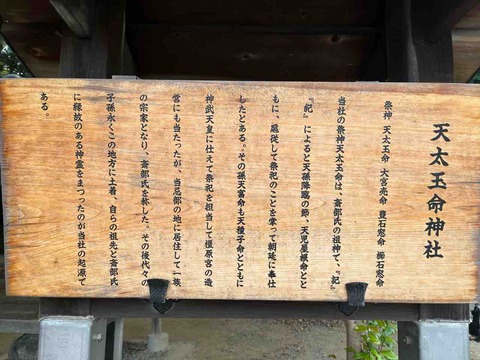 天太玉命神社
祭神　天太玉命　大宮売命　豊石窓命　櫛石窓命
当社の祭神天太玉命は、斎部氏の祖神で、『記』
『紀』によると天孫降臨の節、天児屋根命とと
もに、扈従して祭祀のことを掌って朝廷に奉仕
したとある。その孫天富命も天種子命とともに
神武天皇に仕えて祭祀を担当して橿原宮の造
営にも当たったが、当忌部の地に居住して一族
の宗家となり、斎部氏を称した。その後代々の
子孫永くこの地方に土着、自らの祖先と斎部氏
に縁故のある神霊をまつったのが当社の起源で
ある。